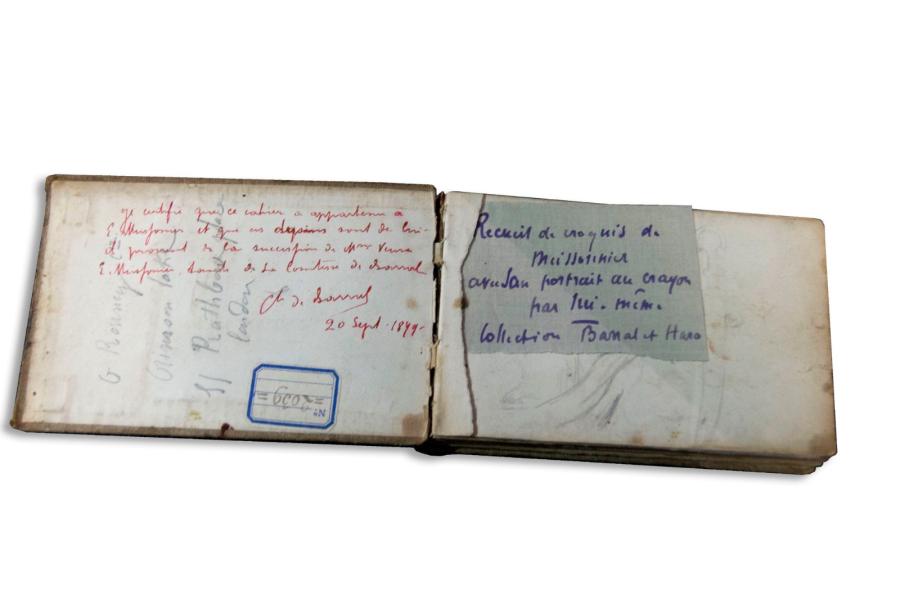 Je certifie que ce cahier a appartenu à
E. Meissonier et que ces dessins sont de lui.
et provient de la succession de Mme Veuve
E. Meissonier, tante de la Comtesse de Barral
Ct de Barral
20 Sept. 1899-
G Rowney &
51 Rathbone place
London
No
=2039=
Recueil de croquis de
Meissonnier
avec son portrait au crayon
par lui-même
Collection Barral et Haro